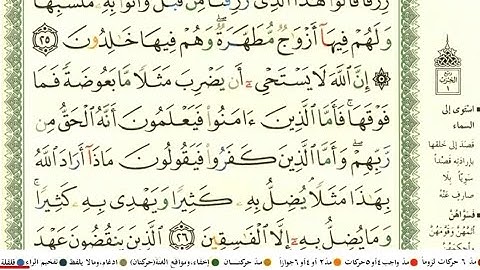 رِزْقًا قَالُوا۟ هَٰذَا ٱلَّذِى رُزِقْنَا مِن قَبْلُ وَأُتُوا۟ بِهِۦ مُتَشَٰبِهًا
وَلَهُمْ فِيهَآ أَزْوَٰجٌ مُّطَهَّرَةٌ وَهُمْ فِيهَا خَٰلِدُونَ ٢٥
۞ إِنَّ ٱللَّهَ لَا يَسْتَحْىِۦٓ أَن يَضْرِبَ مَثَلًا مَّا بَعُوضَةً فَمَا
فَوْقَهَا ۚ فَأَمَّا ٱلَّذِينَ ءَامَنُوا۟ فَيَعْلَمُونَ أَنَّهُ ٱلْحَقُّ مِن
رَّبِّهِمْ ۖ وَأَمَّا ٱلَّذِينَ كَفَرُوا۟ فَيَقُولُونَ مَاذَآ أَرَادَ ٱللَّهُ
بِهَٰذَا مَثَلًا ۘ يُضِلُّ بِهِۦ كَثِيرًا وَيَهْدِى بِهِۦ كَثِيرًا ۚ
وَمَا يُضِلُّ بِهِۦٓ إِلَّا ٱلْفَٰسِقِينَ ٢٦ ٱلَّذِينَ يَنقُضُونَ عَهْدَ
الحزب
١
استوى إلى
السماء
قصد إلى خلقها
بإرادته قصداً
سوياً بلا
صارف عنه
فسواهن
أتمهن وقومهن
مد ٦ حركات لزوماً
مد واجب ٤ أو ٥ حركات
مد ٢ أو ٤ أو ٦ جوازاً
مد حركتان
إخفاء، ومواقع الغنة (حركتان)
ادغام، وما لا يلفظ
تفخيم الراء
قلقلة